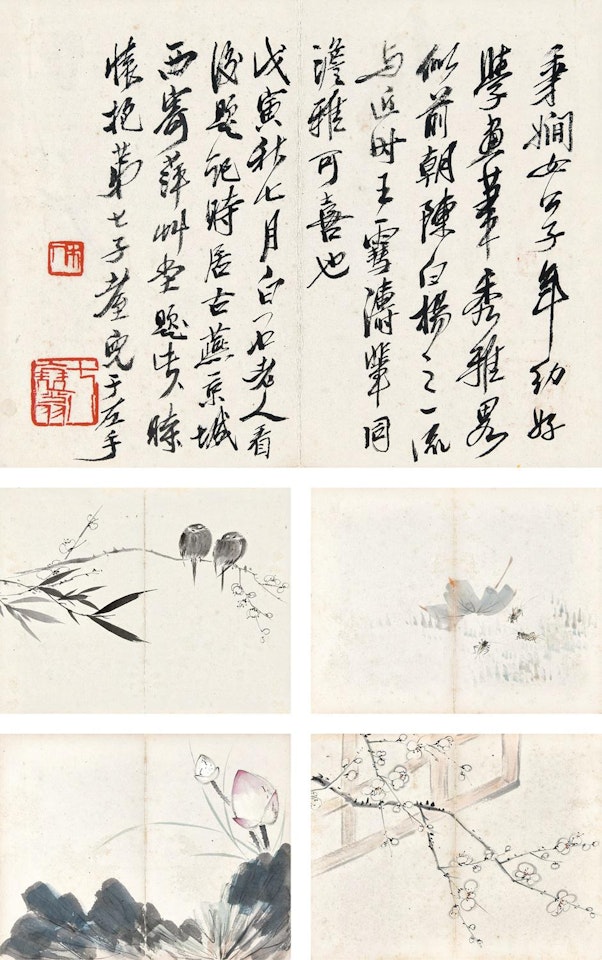 秉嫻女公子年幼好
學畫筆秀雅畧
似前朝陳白楊之一流
与近时王雪濤輩同
澹雅可喜也
戊寅秋七月白石老人看
後題記時居古燕京城
西寄萍艸堂題時
懷抱第七子兒于左手
木人